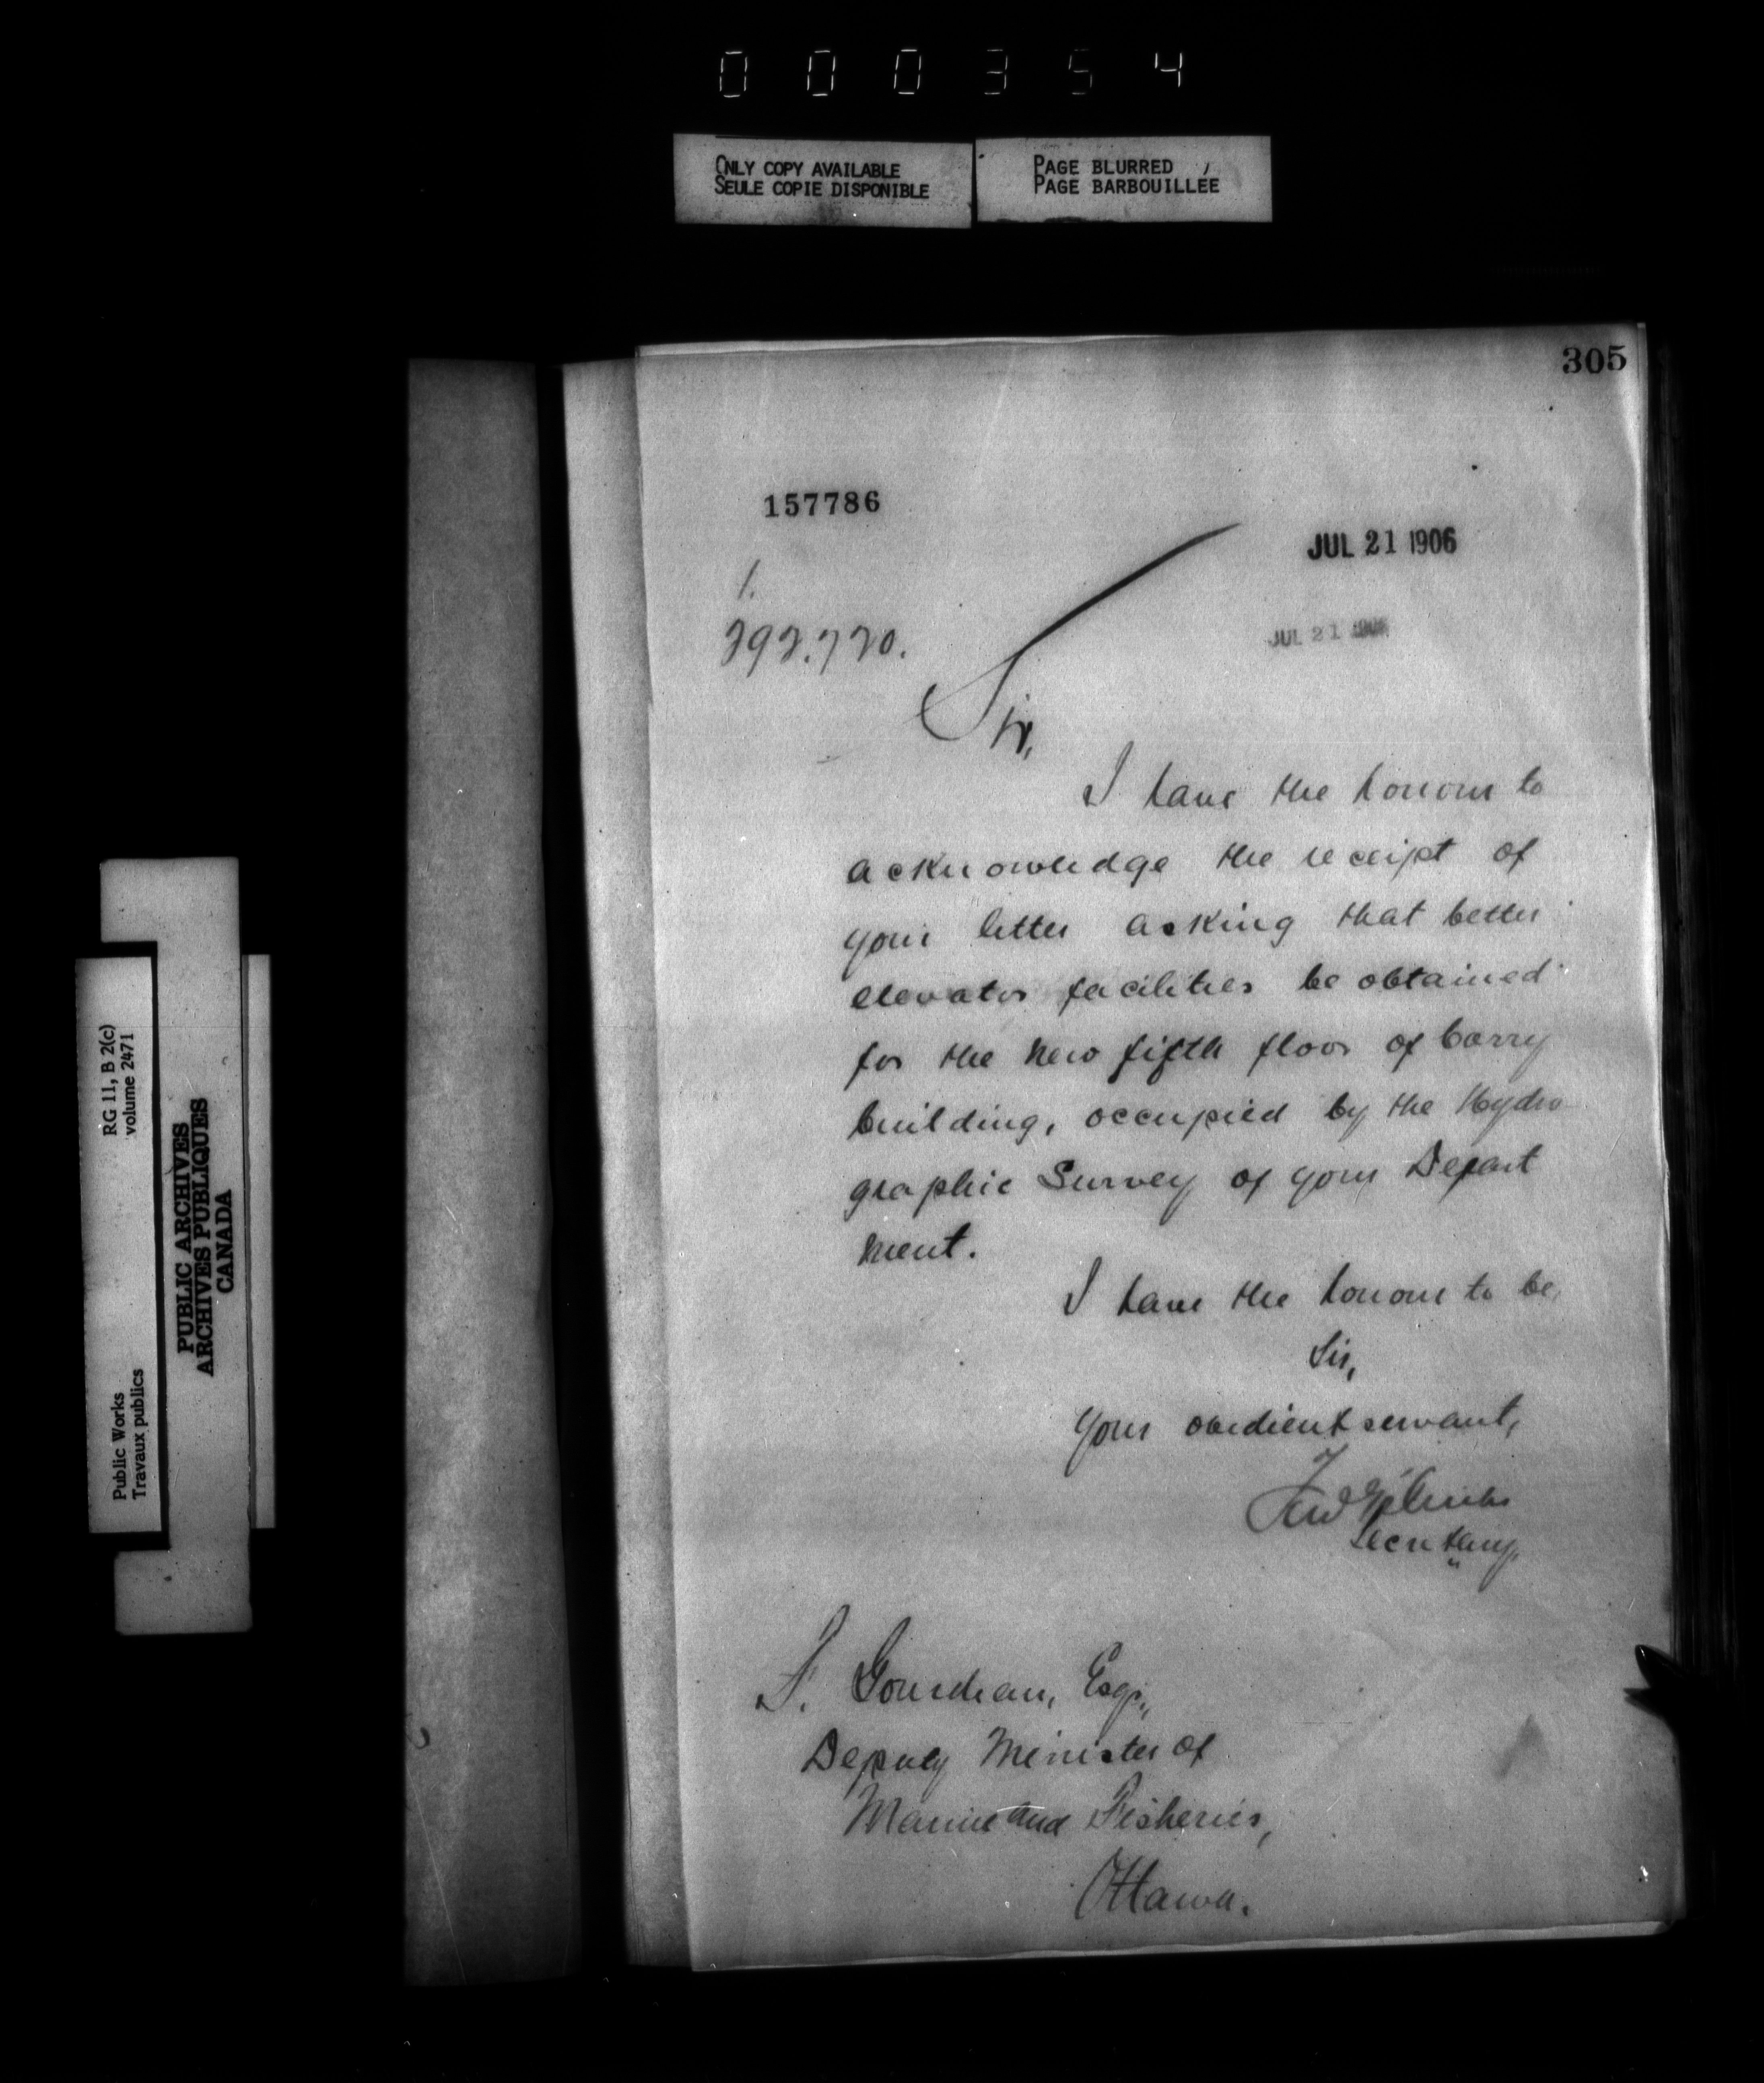 000354
ONLY COPY AVAILABLE
SEULE COPIE DISPONIBLE
PAGE BLURRED
PAGE BARBOUILLÉE
305
157786
JUL 21 1906
1.
292.720.
JUL 21 1906
Sir,
I have the honour to
acknowledge the receipt of
your letter asking that better
elevator facilities be obtained
for the new fifth floor of Corry
building, occupied by the Hydro
graphic Survey of your Depart
ment.
I have the honour to be,
Sir,
Your obedient servant,
Fred
Secretary.
F. Gourdeau, Esqr.,
Deputy Minister of
Marine and Fisheries,
Ottawa.
RG 11, B 2(c)
volume 2471
Public Works
Travaux publics
PUBLIC ARCHIVES
ARCHIVES PUBLIQUES
CANADA